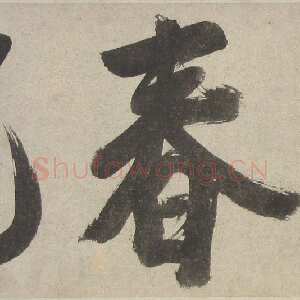 春
Shufawang.CN